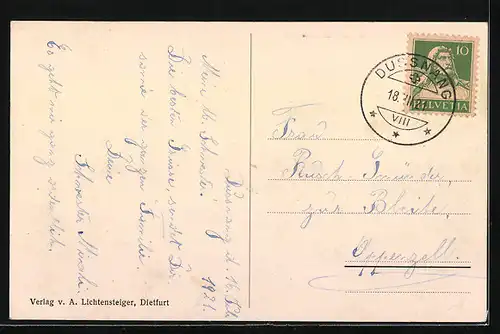 Dussnang d. 16. Feb.
1921.
Meine lb. Schwester!
Die besten Grüsse, sendet Dir
sowie der ganzen Familie.
Deine
Schwester
Es geht mir ganz ordentlich.
Verlag v. A. Lichtensteiger, Dietfurt
10
HELVETIA
DUSSNANG
18.II.21
VIII
Frau
Rusch
zur Bleiche,
Appenzell.